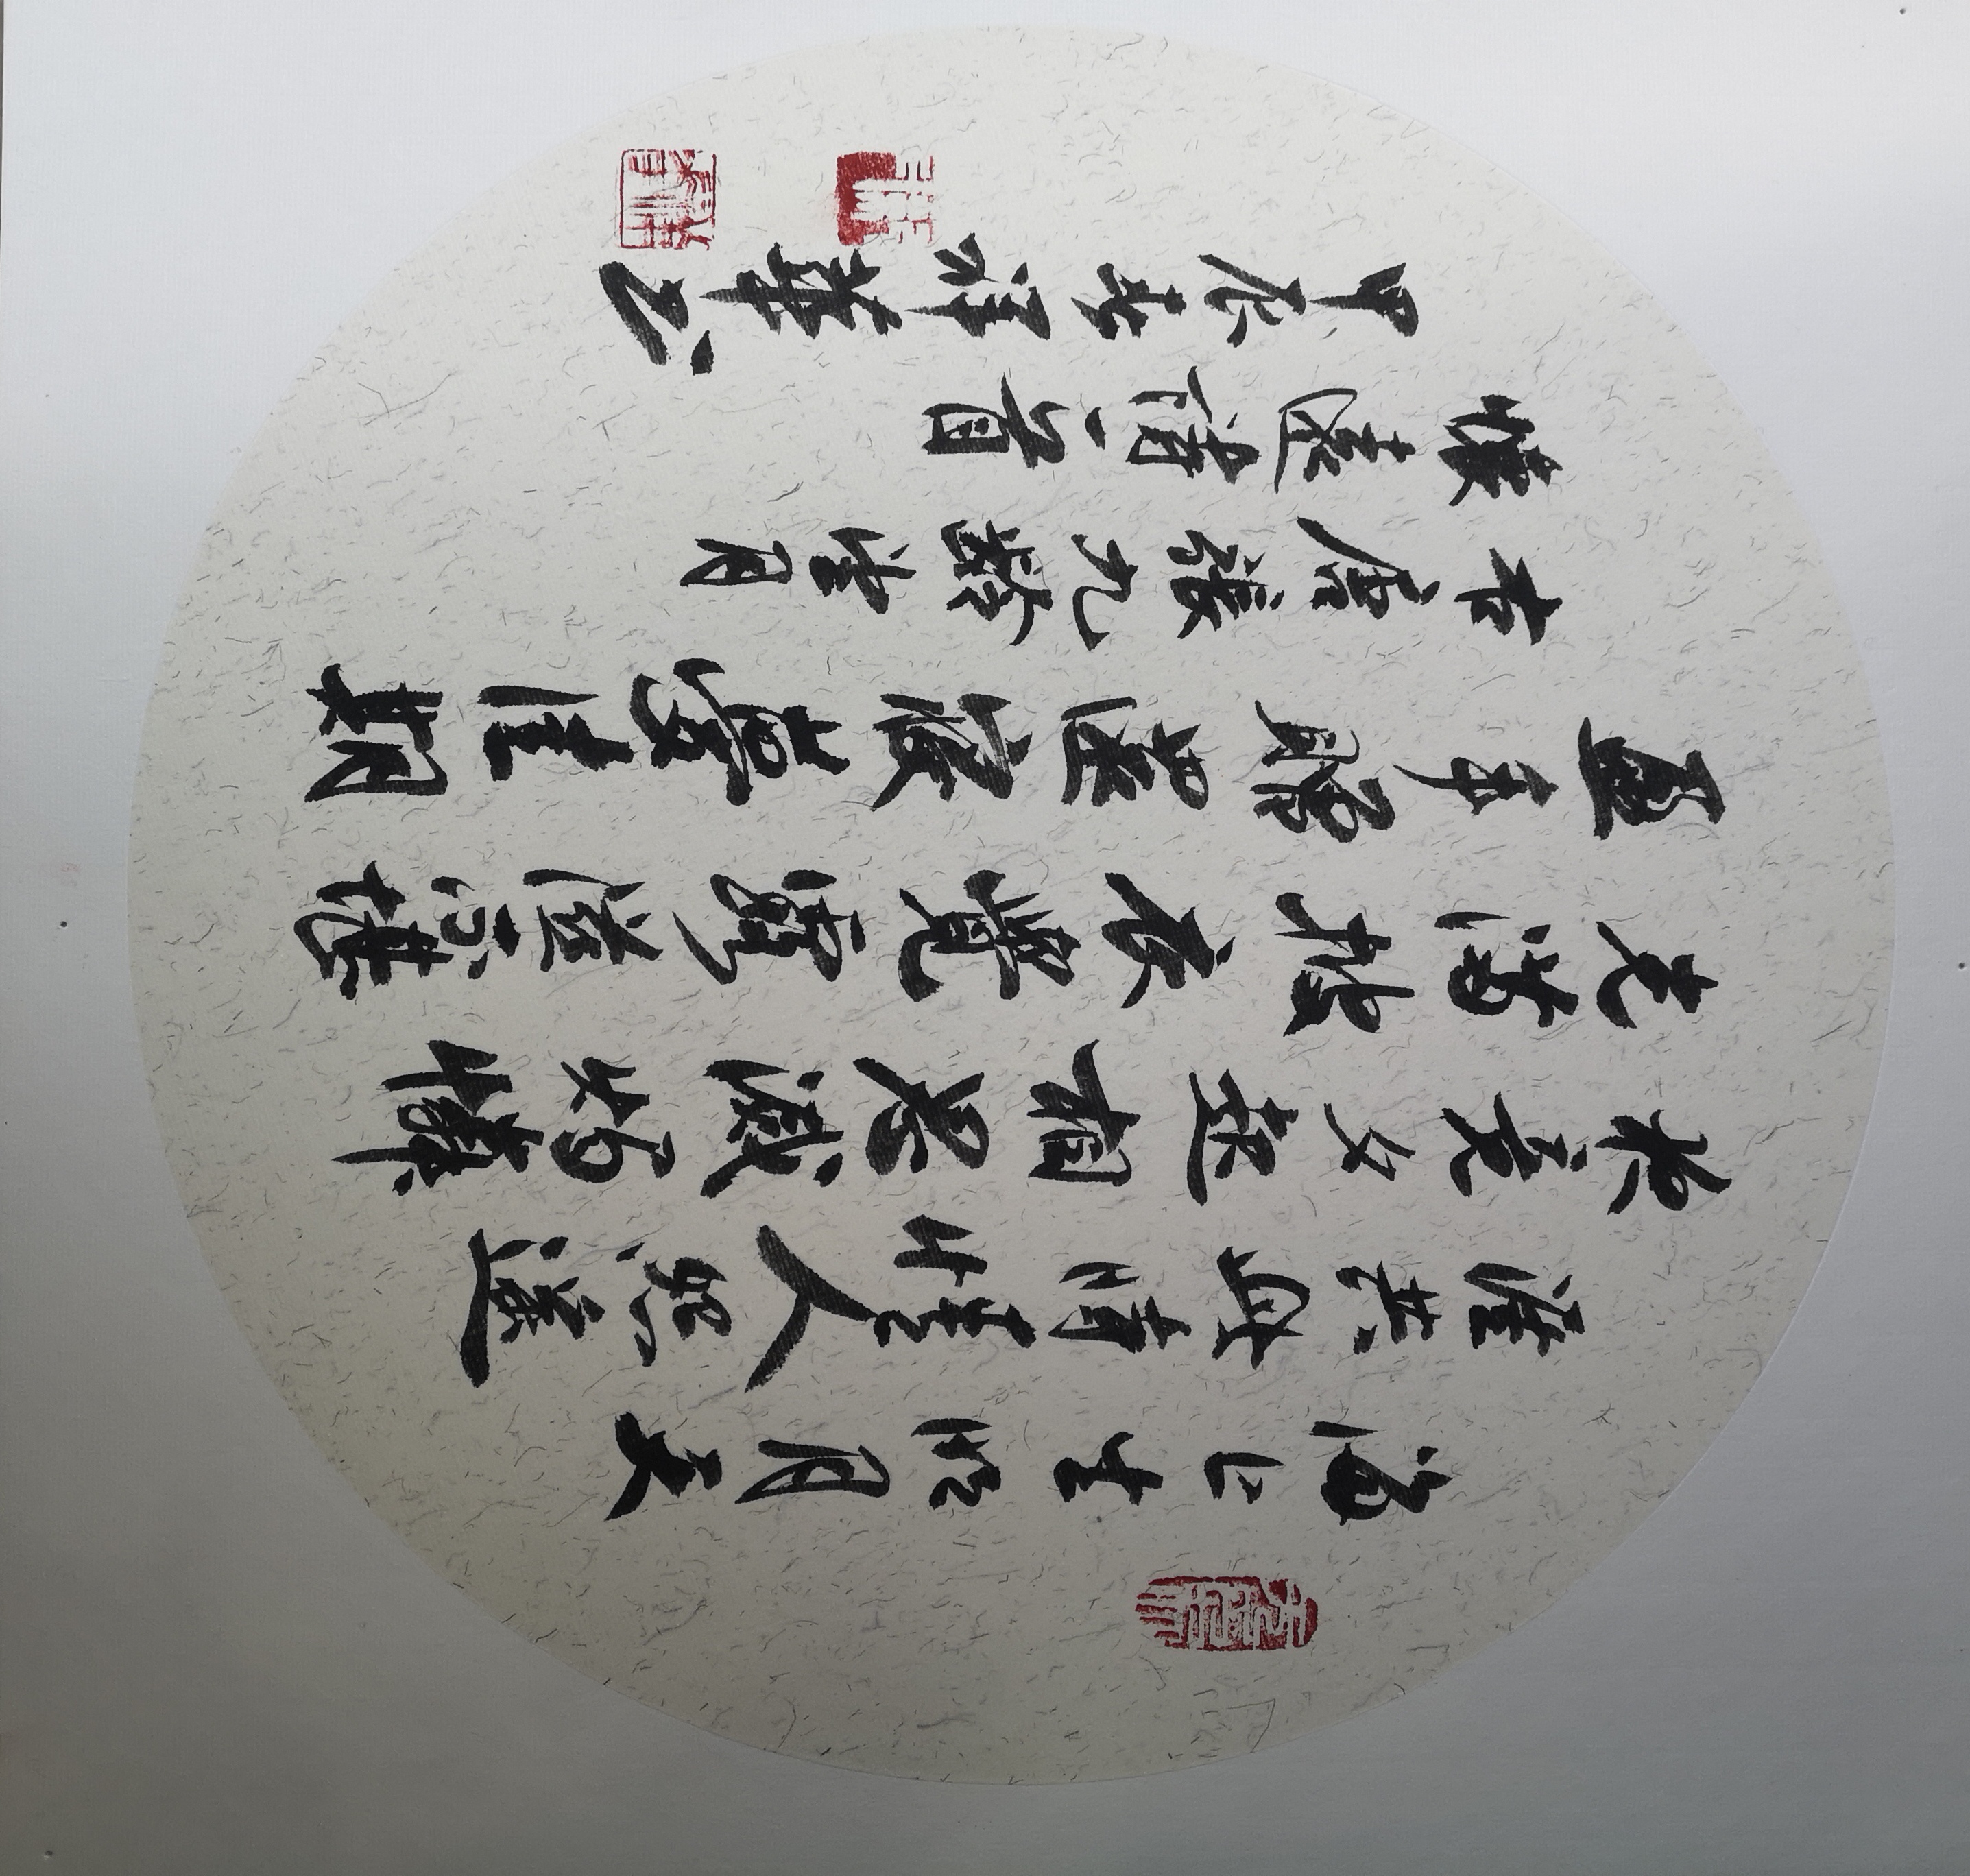 海上生明月天
涯共此時情人怨遥
夜竟夕起相思滅燭憐
光滿披衣覺露滋不堪
盈手贈還寢夢佳期
右唐張九齡望月
懷遠詩一首
甲辰 祥華书